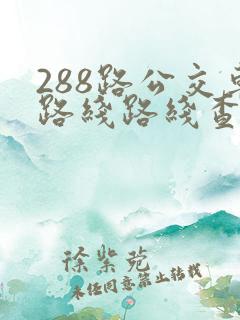 288路公交车
路线路线查
徐紫苑
未经同意禁止转载